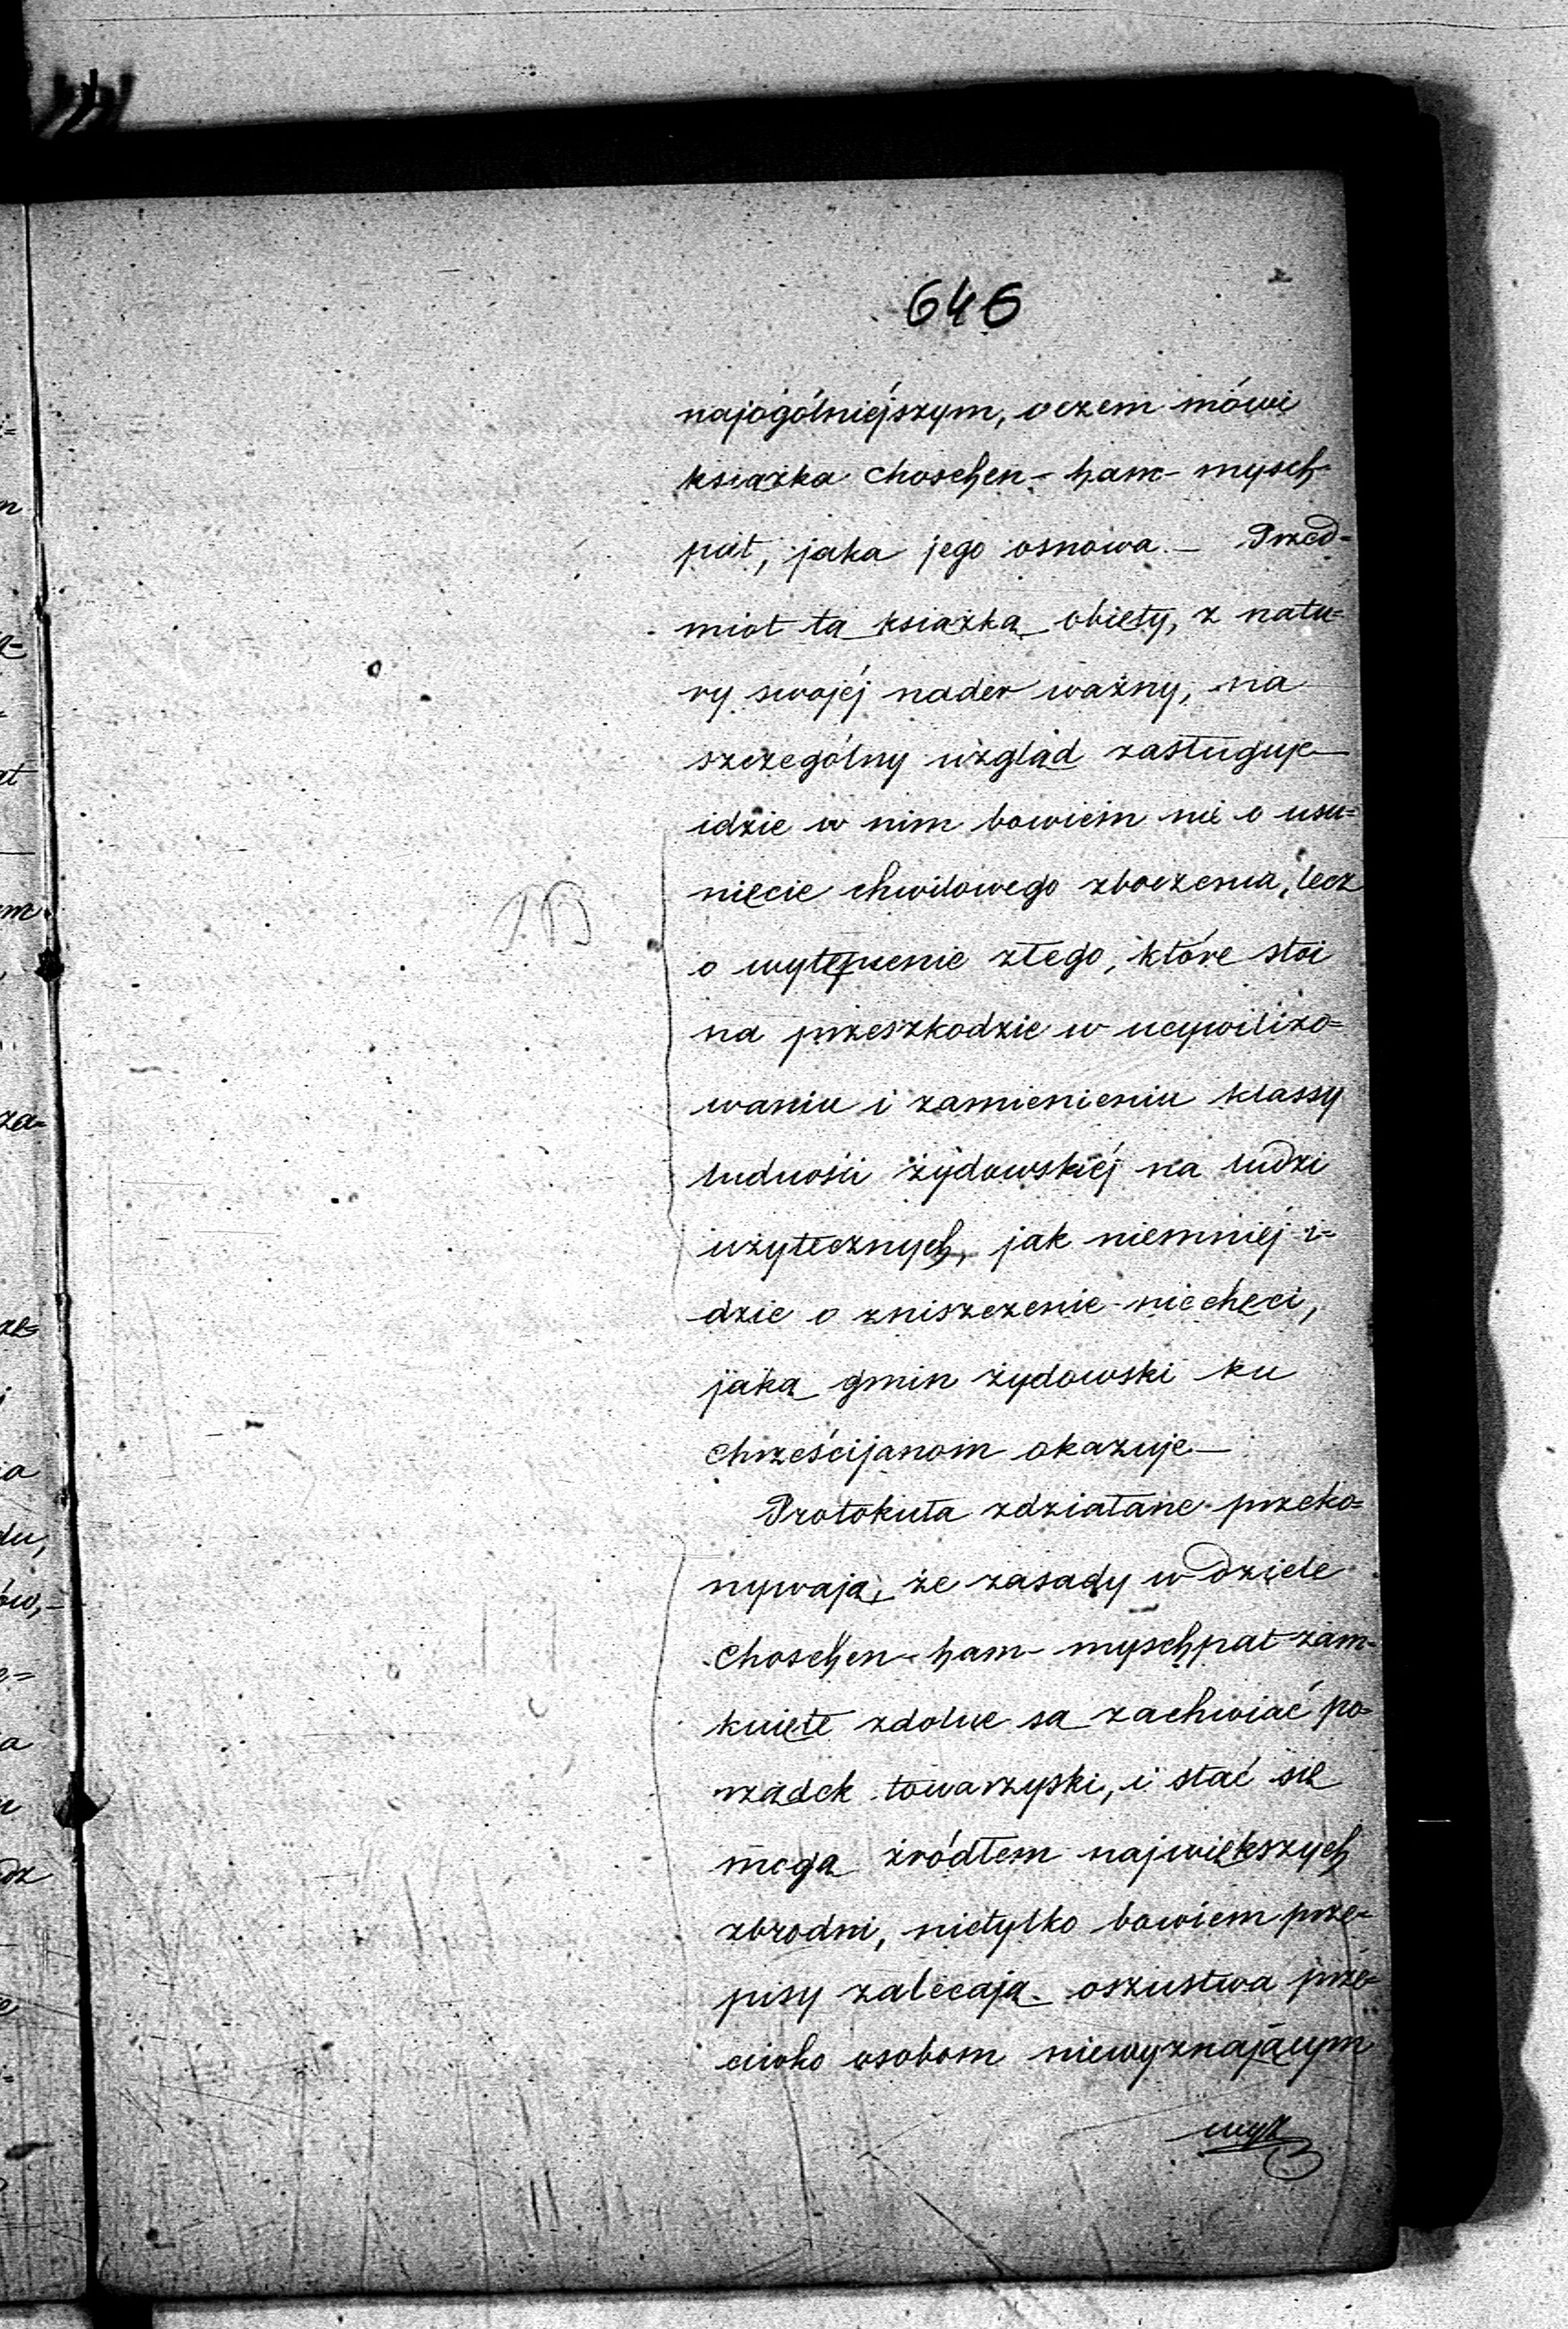 646
najogólniejszym, o czem mówi
książka Choschen-ham-mysch
pat, jaka jego osnowa. — Przed=
miot tą książką objęty, z natu=
ry swojéj nader ważny, na
szczególny wzgląd zasługuje —
idzie w nim bowiem nie o usu=
nięcie chwilowego zboczenia, lecz
o wytępienie złego, które stoi
na przeszkodzie w ucywilizo=
waniu i zamienieniu klassy
ludności żydowskiéj na ludzi
użytecznych, jak niemniéj i=
dzie o zniszczenie niechęci,
jaką gmin żydowski ku
Chrześcijanom okazuje —
Protokuła zdziałane przeko=
nywają, że zasady w dziele
Choschen-ham-myschpat zam=
knięte zdolne są zachwiać po=
rządek towarzyski, i stać się
mogą źródłem największych
zbrodni, nietylko bowiem prze=
pisy zalecają oszustwa prze=
ciwko osobom niewyznającym
wyz